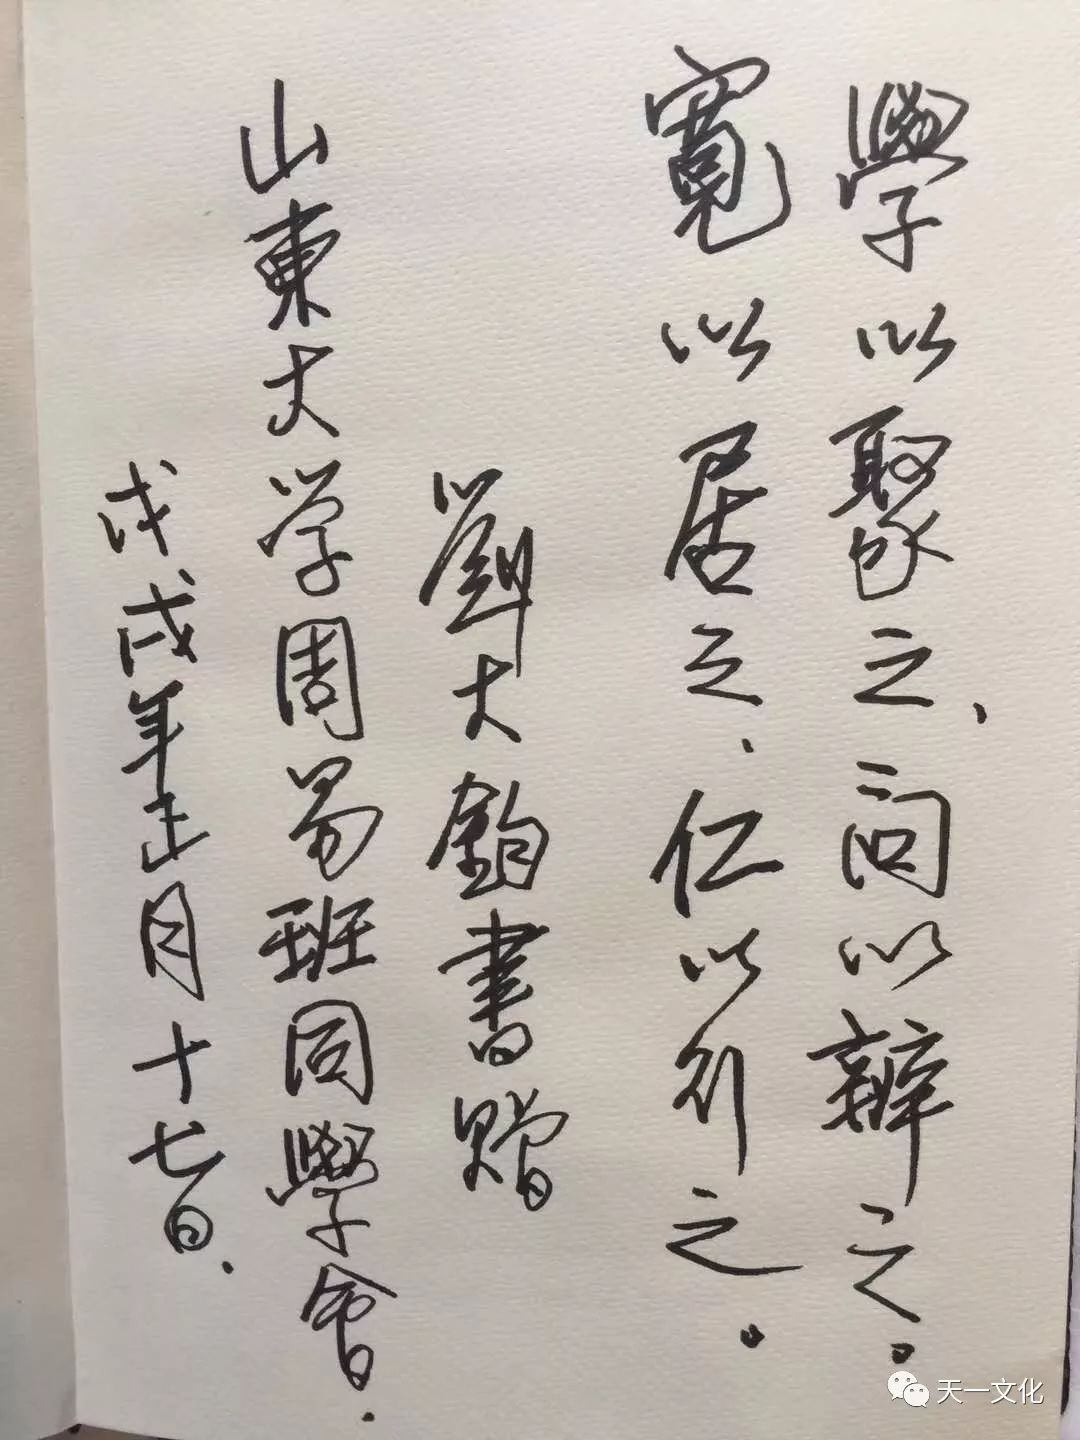 學以聚之、問以辨之。
寬以居之、仁以行之。
劉大鈞書贈
山東大学周易班同學會.
戊戌年正月十七日.
天一文化